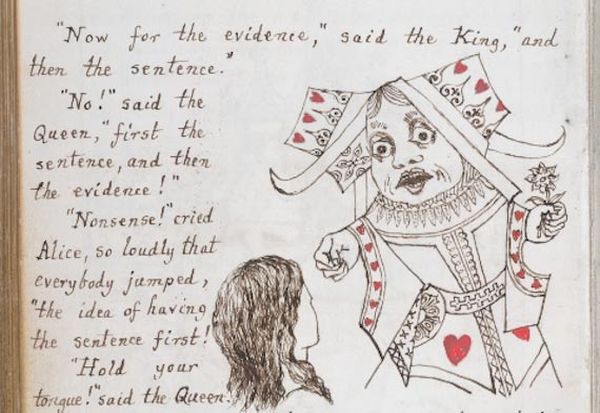 "Now for the evidence," said the King, "and
then the sentence."
"No!" said the
Queen, "first the
sentence, and then
the evidence!"
"Nonsense!" cried
Alice, so loudly that
everybody jumped,
"the idea of having
the sentence first!
"Hold your
tongue!" said the Queen.